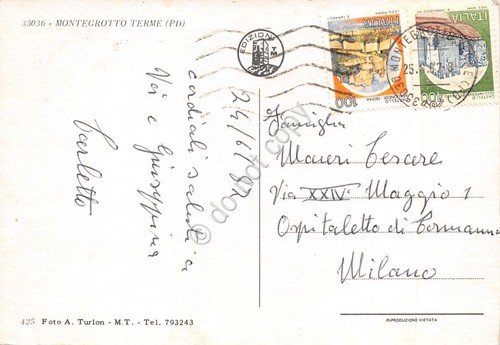 35036 - MONTEGROTTO TERME (PD)
EDIZIONI
ITALIA
100
ITALIA
24/6/82
cordiali saluti a
Voi e Giuseppina
Carletto
Famiglia
Maueri Cesare
Via XXIVº Maggio 1
Ospitaletto di Cormanno
Milano
do not copy
425 Foto A. Turlon - M.T. - Tel. 793243
RIPRODUZIONE VIETATA